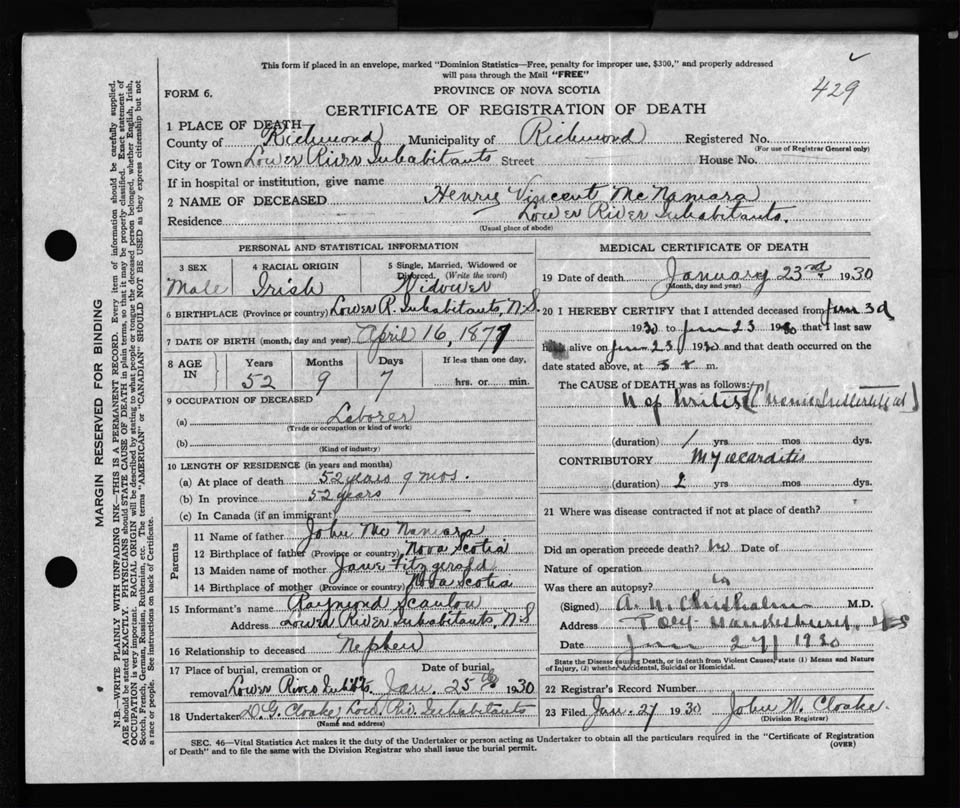 This form if placed in an envelope, marked "Dominion Statistics—Free, penalty for improper use, $300," and properly addressed
will pass through the Mail "FREE"
429
FORM 6.
PROVINCE OF NOVA SCOTIA
CERTIFICATE OF REGISTRATION OF DEATH
1 PLACE OF DEATH—
County of Richmond Municipality of Richmond Registered No.
(For use of Registrar General only)
City or Town Lower River Inhabitants Street House No.
If in hospital or institution, give name
2 NAME OF DECEASED Henry Vincent McNamara
Residence Lower River Inhabitants.
(Usual place of abode)
PERSONAL AND STATISTICAL INFORMATION
3 SEX 4 RACIAL ORIGIN 5 Single, Married, Widowed or
Divorced. (Write the word)
Male Irish Widower
6 BIRTHPLACE (Province or country) Lower R. Inhabitants, N.S.
7 DATE OF BIRTH (month, day and year) April 16, 1877
8 AGE IN Years Months Days If less than one day,
52 9 7 hrs. or min.
9 OCCUPATION OF DECEASED
(a) Leborer
(Trade or occupation or kind of work)
(b)
(Kind of industry)
10 LENGTH OF RESIDENCE (in years and months)
(a) At place of death 52 years 9 mos.
(b) In province 52 years
(c) In Canada (if an immigrant)
Parents
11 Name of father John McNamara
12 Birthplace of father (Province or country) Nova Scotia
13 Maiden name of mother Jane Fitzgerald
14 Birthplace of mother (Province or country) Nova Scotia
15 Informant's name Raymond Scanlon
Address Lower River Inhabitants, N.S
16 Relationship to deceased Nephew
17 Place of burial, cremation or Date of burial,
removal Lower River Inhbts. Jan. 25th 1930
18 Undertaker D.G. Cloake, Low. Riv. Inhabitants
(Name and address)
MEDICAL CERTIFICATE OF DEATH
19 Date of death January 23rd 1930
(Month, day and year)
20 I HEREBY CERTIFY that I attended deceased from Jan 3d
1930 to Jan 23 1930 that I last saw
alive on Jan 23 1930 and that death occurred on the
date stated above, at m.
The CAUSE OF DEATH was as follows:
Nephritis (Chronic Interstitial)
(duration) 1 yrs mos dys.
CONTRIBUTORY Myocarditis
(duration) 2 yrs mos dys.
21 Where was disease contracted if not at place of death?
Did an operation precede death? No Date of
Nature of operation
Was there an autopsy?
(Signed) A. N. Chisholm M.D.
Address Port Hawkesbury, NS
Date Jan 27/ 1930
State the Disease causing Death, or in death from Violent Causes, state (1) Means and Nature
of Injury, (2) whether Accidental, Suicidal or Homicidal.
22 Registrar's Record Number
23 Filed Jan. 27 1930 John N. Cloake.
(Division Registrar)
SEC. 46—Vital Statistics Act makes it the duty of the Undertaker or person acting as Undertaker to obtain all the particulars required in the "Certificate of Registration
of Death" and to file the same with the Division Registrar who shall issue the burial permit.
(OVER)
MARGIN RESERVED FOR BINDING
N.B.—WRITE PLAINLY WITH UNFADING INK—THIS IS A PERMANENT RECORD. Every item of information should be carefully supplied.
AGE should be stated EXACTLY. PHYSICIANS should STATE CAUSE OF DEATH in plain terms, so that it may be properly classified. Exact statement of
OCCUPATION is very important. RACIAL ORIGIN will be described by stating to what people or tongue the deceased person belonged, whether English, Irish,
Scotch, French, German, Russian, Ruthenian, etc. The terms "AMERICAN" or "CANADIAN" SHOULD NOT BE USED as they express citizenship but not
a race or people. See instructions on back of Certificate.